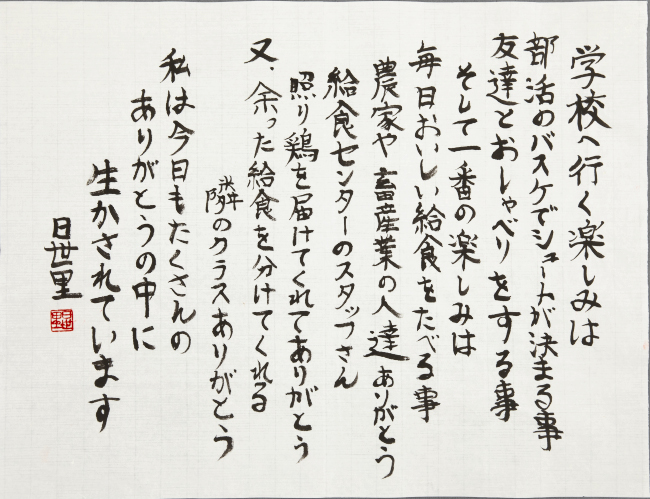 学校へ行く楽しみは
部活のバスケでシュートが決まる事
友達とおしゃべりをする事
そして一番の楽しみは
毎日おいしい給食をたべる事
農家や畜産業の人達ありがとう
給食センターのスタッフさん
照り鶏を届けてくれてありがとう
又、余った給食を分けてくれる
隣のクラスありがとう
私は今日もたくさんの
ありがとうの中に
生かされています
日世里